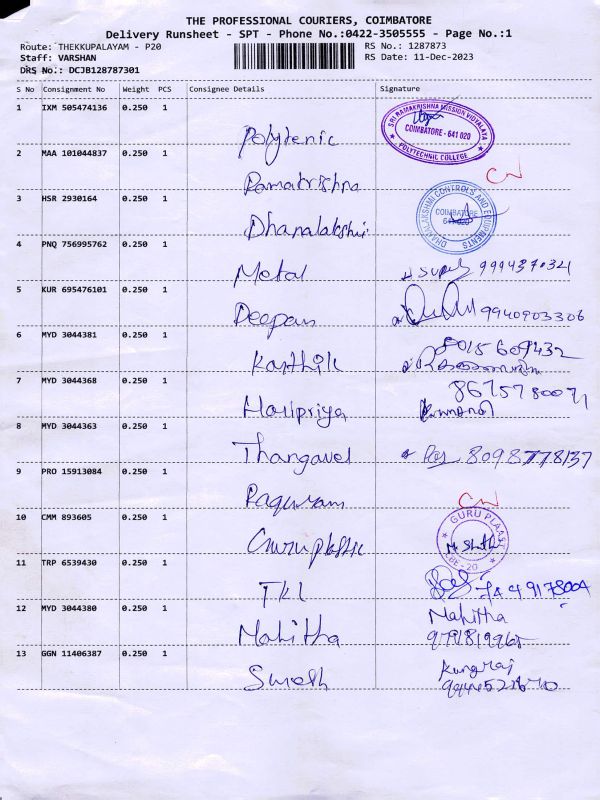 THE PROFESSIONAL COURIERS, COIMBATORE
Delivery Runsheet - SPT - Phone No.:0422-3505555 - Page No.:1
Route: THEKKUPALAYAM - P20
RS No.: 1287873
Staff: VARSHAN
RS Date: 11-Dec-2023
DRS No.: DCJB128787301
S No Consignment No Weight PCS Consignee Details Signature
1 IXM 505474136 0.250 1 Polytenic
SRI RAMAKRISHNA MISSION VIDYALAYA
COIMBATORE - 641 020
POLYTECHNIC COLLEGE
2 MAA 101044837 0.250 1 Ramakrishna CN
3 HSR 2930164 0.250 1 Dhanalakshmi
DHANALAKSHMI CONTROLS AND EQUIPMENTS
COIMBATORE
641 020
4 PNQ 756995762 0.250 1 Metal
5 KUR 695476101 0.250 1 Deepan 9940903306
6 MYD 3044381 0.250 1 Karthik 8015609432
7 MYD 3044368 0.250 1 Haripriya
8 MYD 3044363 0.250 1 Thangavel
9 PRO 15913084 0.250 1 Raguram CN
10 CMM 893605 0.250 1 Guruplastic
GURU PLAAST
CBE-20
11 TRP 6539430 0.250 1 TKL
12 MYD 3044380 0.250 1 Mahitha Mahitha
13 GGN 11406387 0.250 1 Suresh